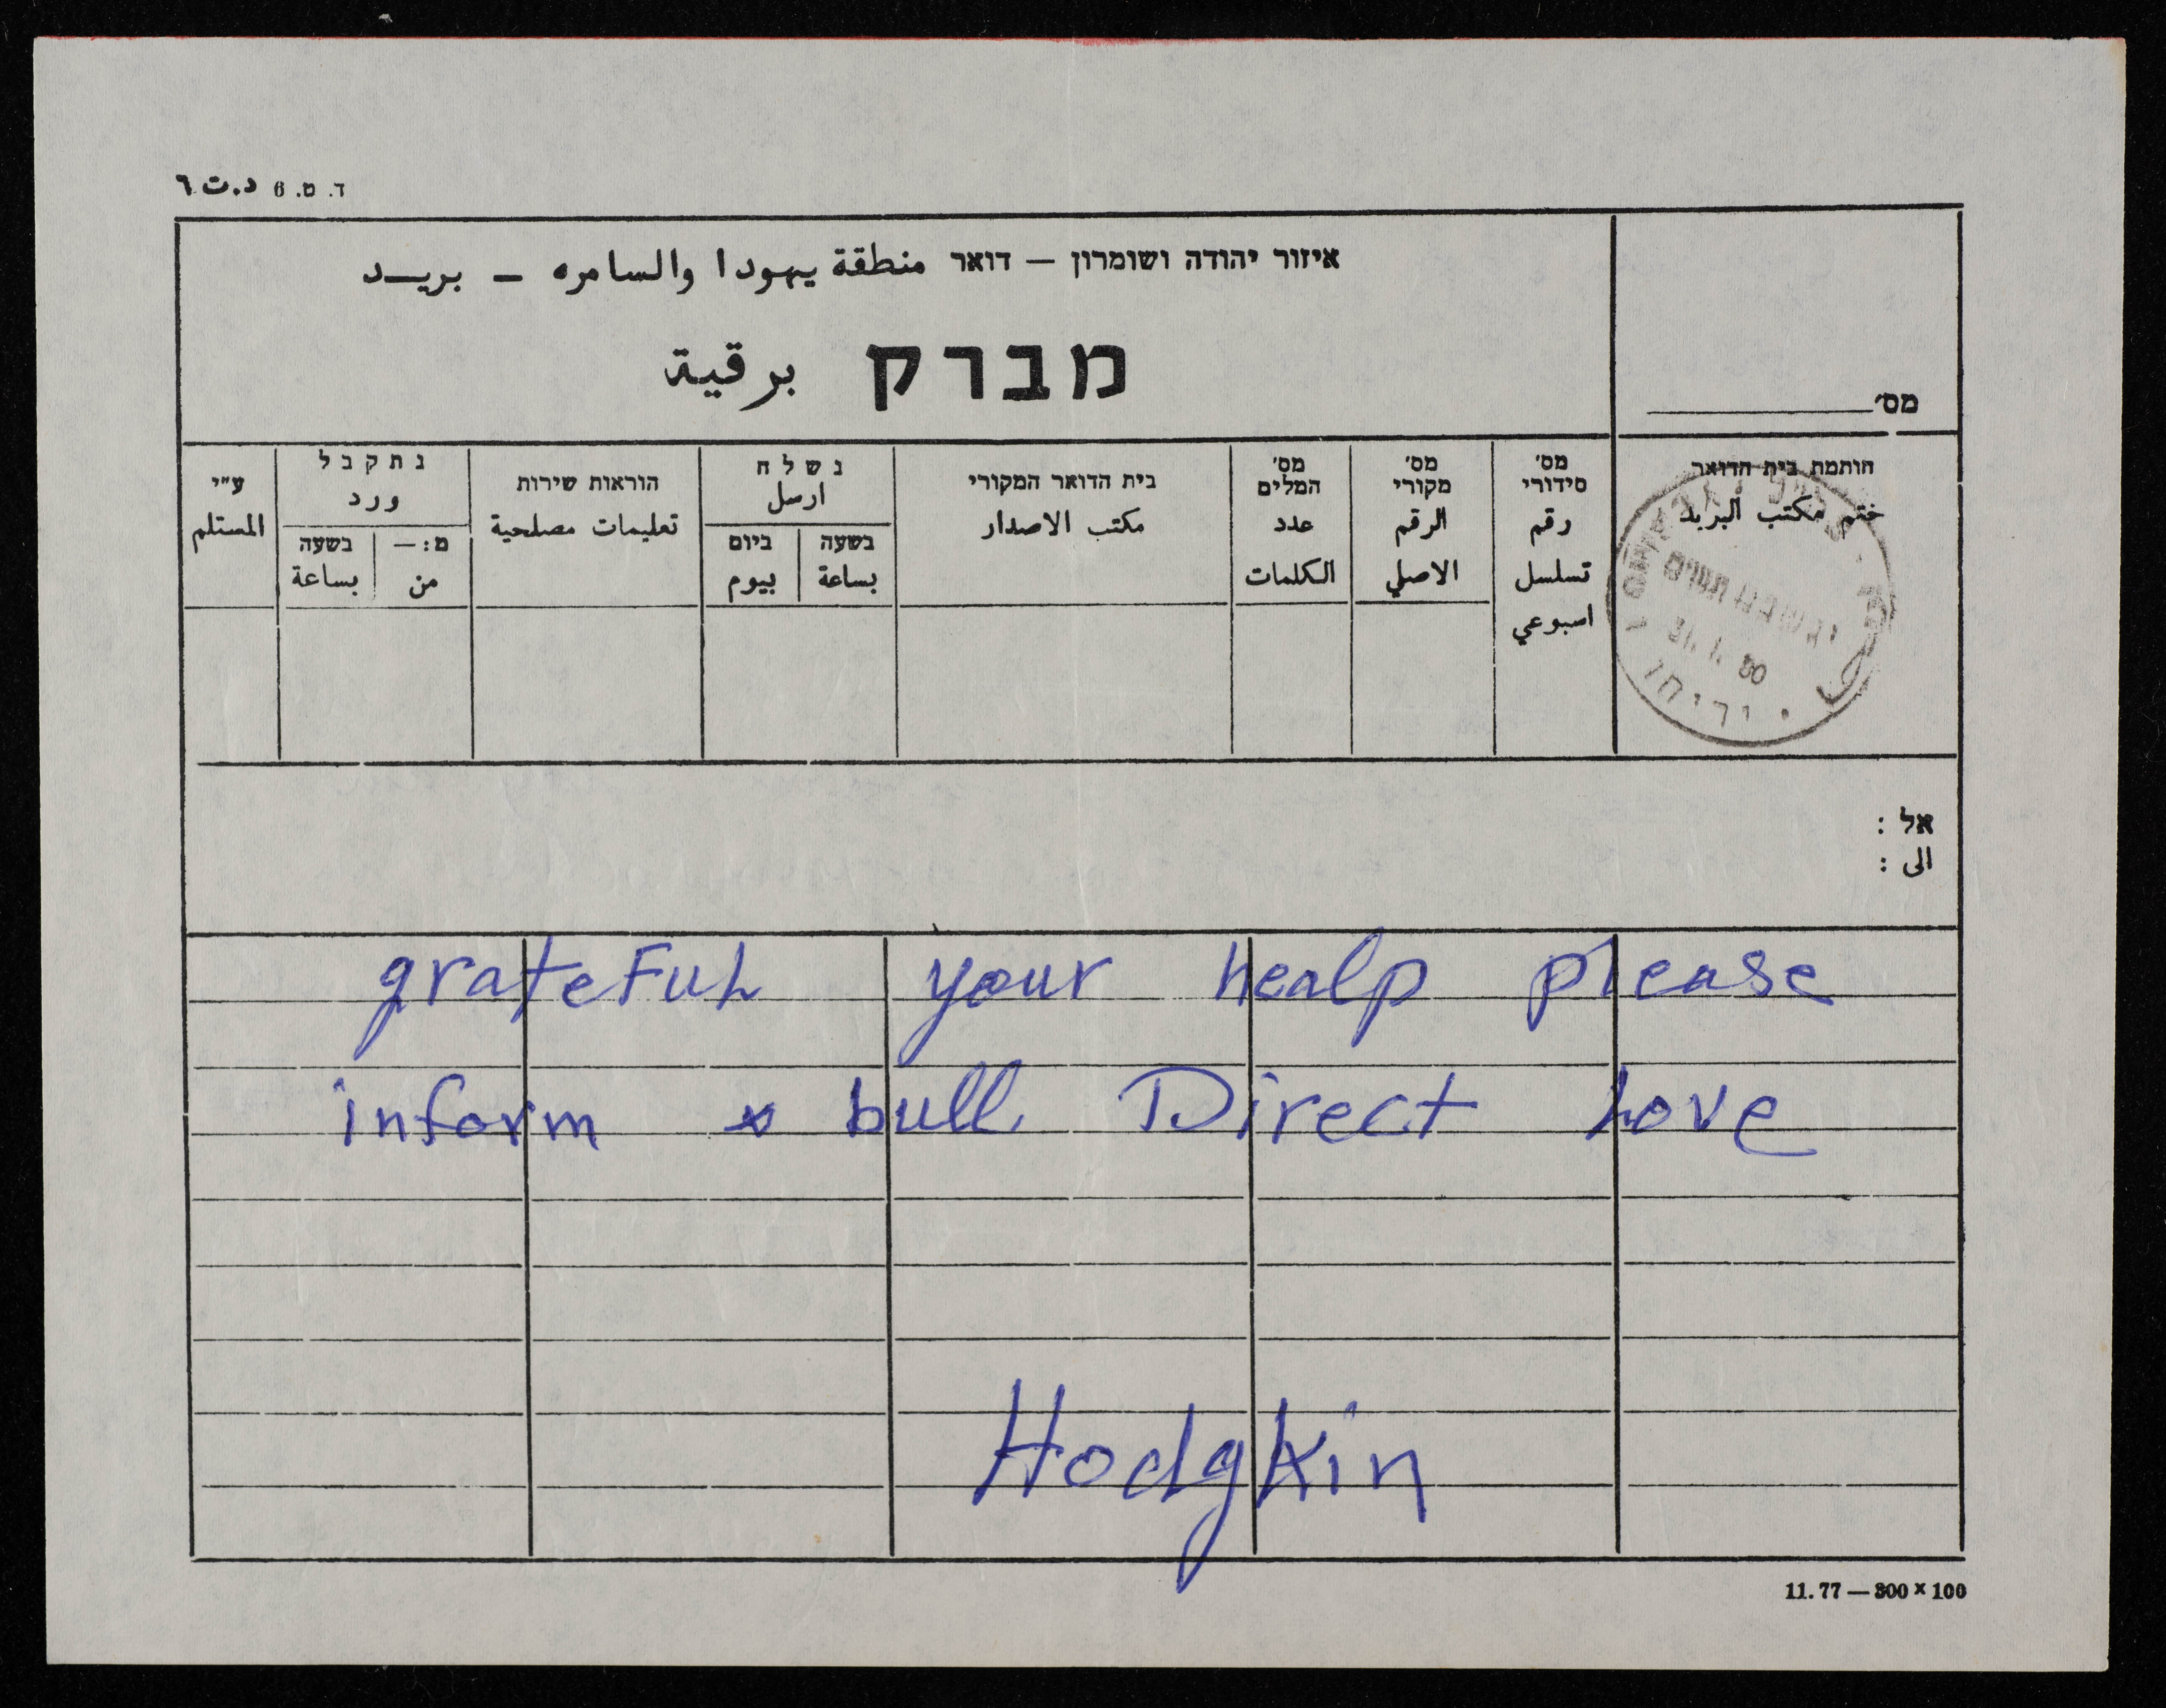 ד. ט. 6 د.ت ٦
איזור יהודה ושומרון — דואר منطقة يهودا والسامره - بريـد
מברק برقية
מס׳
חותמת בית הדואר
ختم مكتب البريد
יריחו
מס׳ סידורי
رقم تسلسل اسبوعي
מס׳ מקורי
الرقم الاصلي
מס׳ המלים
عدد الكلمات
בית הדואר המקורי
مكتب الاصدار
נשלח
ارسل
בשעה
بساعة
ביום
بيوم
הוראות שירות
تعليمات مصلحية
נתקבל
ورد
מ: —
من
בשעה
بساعة
ע״י
المستلم
אל :
الى :
grateFul your healp please
inform bull Direct Love
Hodgkin
11.77 — 300 × 100